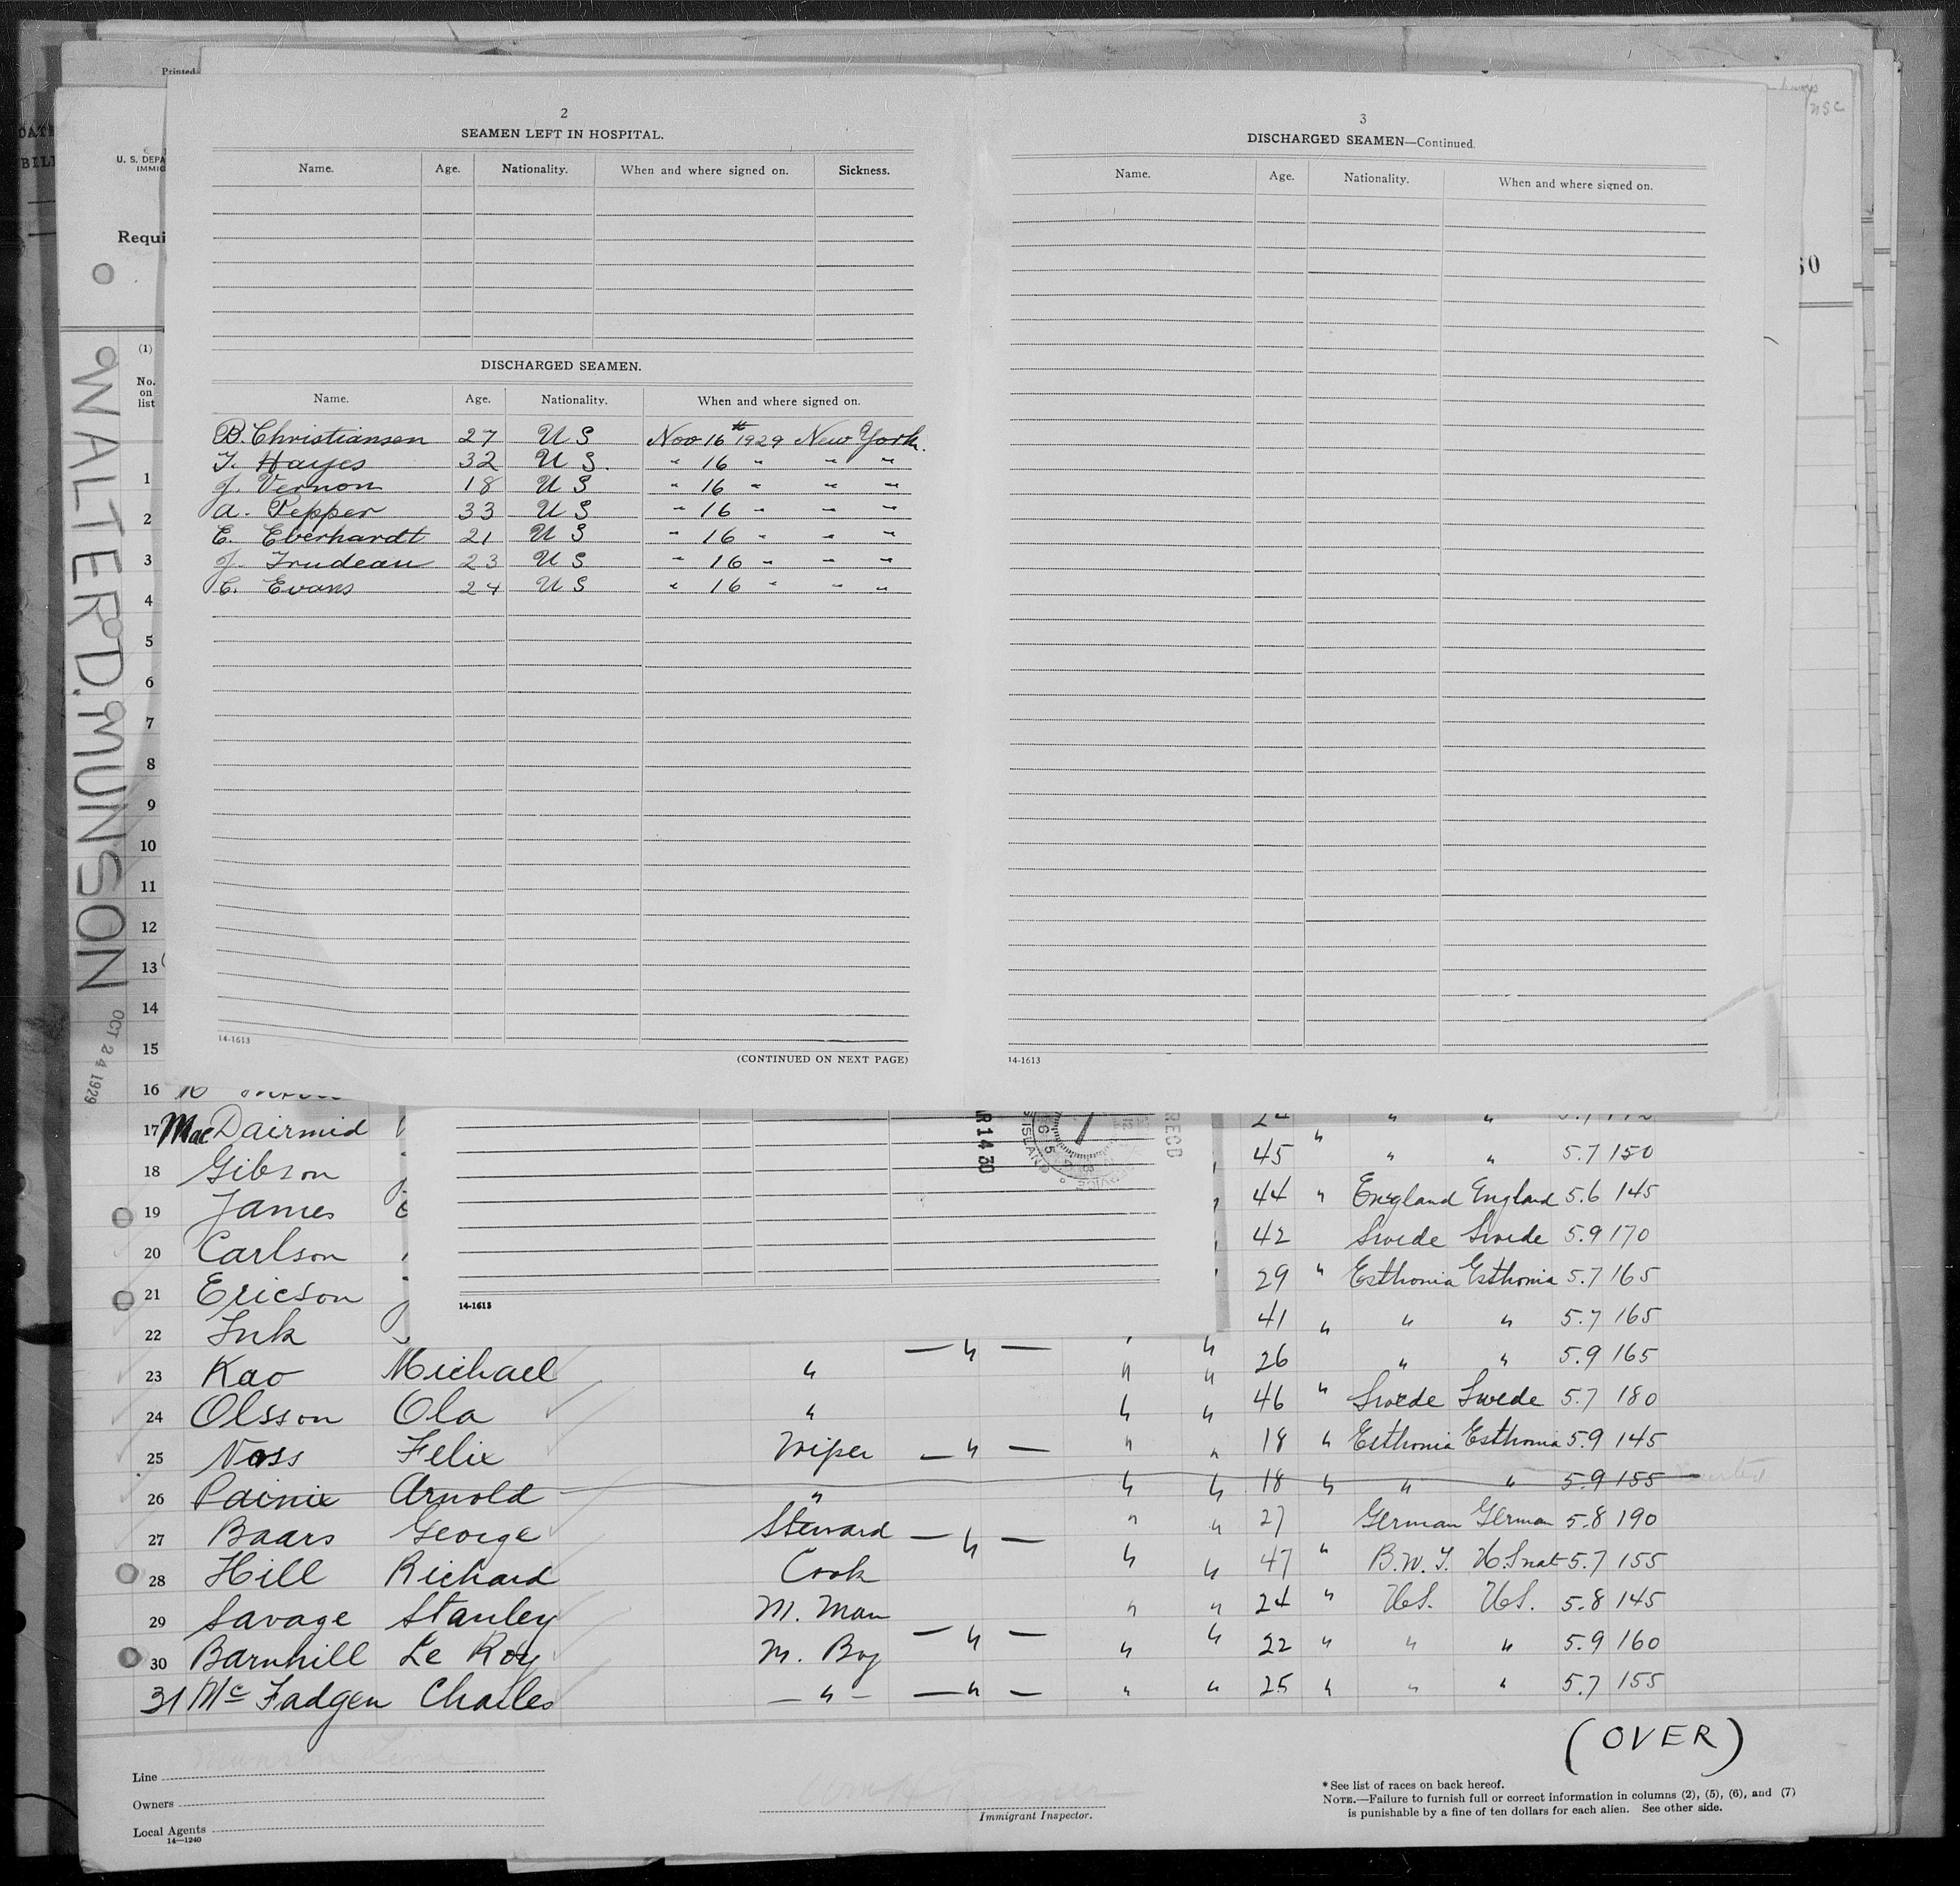 Printed
U. S. DEPA
IMMIG
Requi
WALTER D. MUNSON
OCT 24 1929
2
SEAMEN LEFT IN HOSPITAL.
Name. Age. Nationality. When and where signed on. Sickness.
DISCHARGED SEAMEN.
Name. Age. Nationality. When and where signed on.
B. Christiansen 27 U S Nov 16th 1929 New York.
T. Hayes 32 U S. " 16 " " "
J. Vernon 18 U S " 16 " " "
A. Pepper 33 U S " 16 " " "
E. Eberhardt 21 U S " 16 " " "
J. Trudeau 23 U S " 16 " " "
C. Evans 24 U S " 16 " " "
14-1613
(CONTINUED ON NEXT PAGE)
3
DISCHARGED SEAMEN—Continued.
Name. Age. Nationality. When and where signed on.
14-1613
(1)
No.
on
list
1
2
3
4
5
6
7
8
9
10
11
12
13
14
15
16
R 14 30
RECD
14-1613
17 MacDairmid 45 " " " 5.7 150
18 Gibson 44 " England England 5.6 145
19 James 42 Swede Swede 5.9 170
20 Carlson 29 " Esthonia Esthonia 5.7 165
21 Ericson 41 " " " 5.7 165
22 Ink 26 " " 5.9 165
23 Kao Michael " — " — " " 46 " Swede Swede 5.7 180
24 Olsson Ola " " " 18 " Esthonia Esthonia 5.9 145
25 Noss Felix Wiper — " — " " 18 " " " 5.9 155
26 Arnold " " " 27 German German 5.8 190
27 Baars George Steward — " — " " 47 " B.W.I. U.S nat 5.7 155
28 Hill Richard Cook " " 24 " U.S. U.S. 5.8 145
29 Savage Stanley M. Man — " — " " 22 " " " 5.9 160
30 Barnhill Le Roy M. Boy " " 25 " " " 5.7 155
31 Mc Fadgen Charles — " — — " — " "
(OVER)
Line Munson Line
Owners
Local Agents
14—1240
Immigrant Inspector.
* See list of races on back hereof.
NOTE.—Failure to furnish full or correct information in columns (2), (5), (6), and (7)
is punishable by a fine of ten dollars for each alien. See other side.